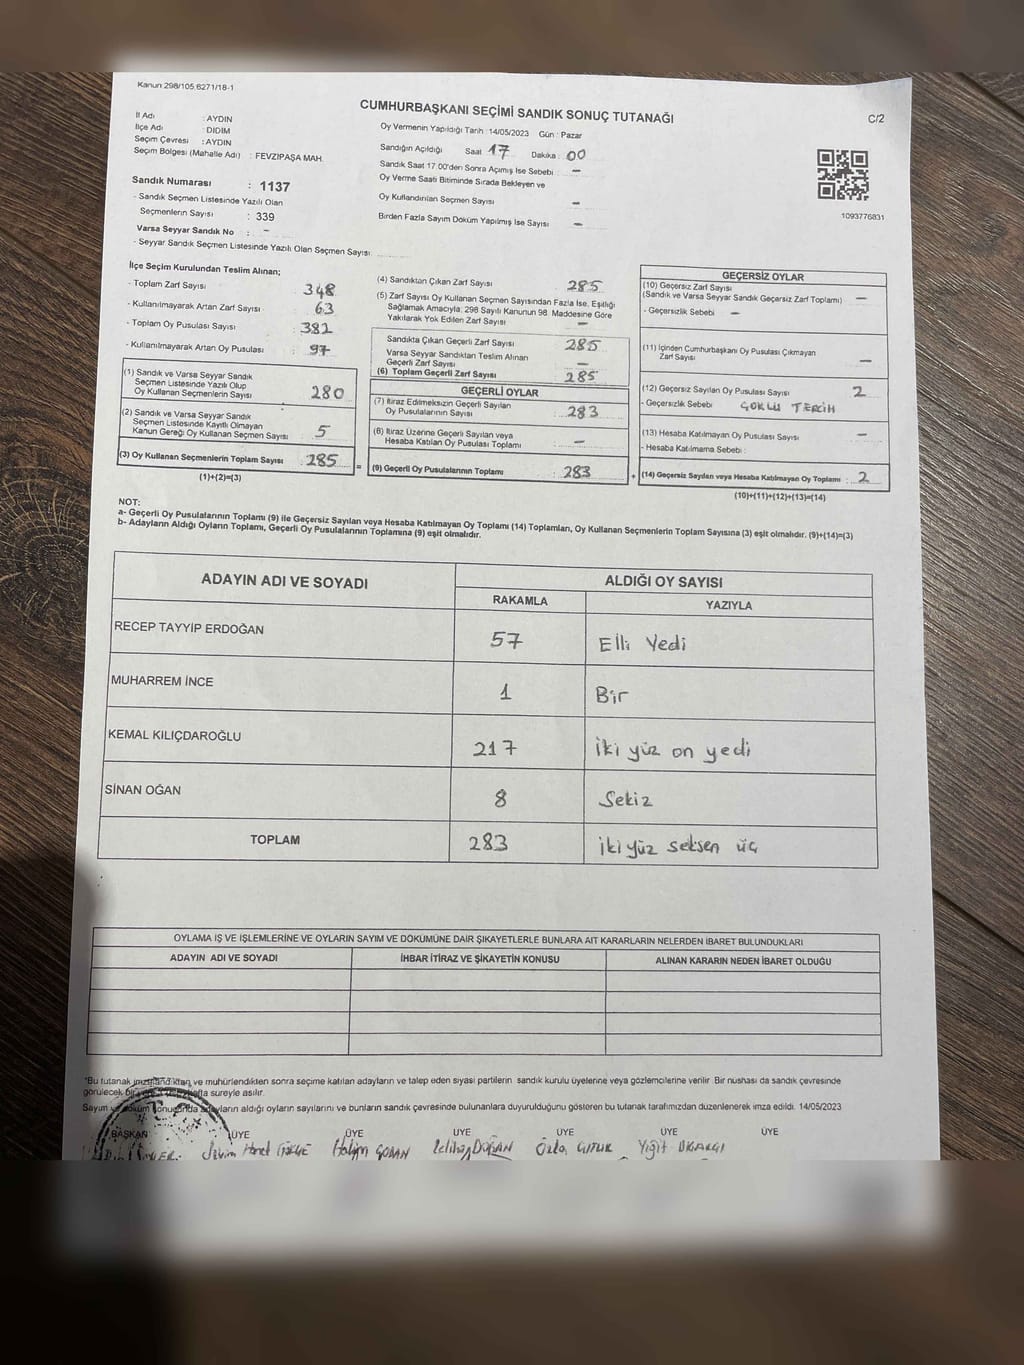 Kanun 298/105,6271/18-1
CUMHURBAŞKANI SEÇİMİ SANDIK SONUÇ TUTANAĞI
C/2
İl Adı : AYDIN
İlçe Adı : DİDİM
Seçim Çevresi : AYDIN
Seçim Bölgesi (Mahalle Adı) : FEVZİPAŞA MAH.
Sandık Numarası : 1137
- Sandık Seçmen Listesinde Yazılı Olan
Seçmenlerin Sayısı : 339
Varsa Seyyar Sandık No : -
- Seyyar Sandık Seçmen Listesinde Yazılı Olan Seçmen Sayısı
Oy Vermenin Yapıldığı Tarih : 14/05/2023 Gün : Pazar
Sandığın Açıldığı Saat 17 Dakika : 00
Sandık Saat 17.00'den Sonra Açımış İse Sebebi -
Oy Verme Saati Bitiminde Sırada Bekleyen ve
Oy Kullandırılan Seçmen Sayısı -
Birden Fazla Sayım Döküm Yapılmış İse Sayısı -
1093776831
İlçe Seçim Kurulundan Teslim Alınan;
- Toplam Zarf Sayısı : 348
- Kullanılmayarak Artan Zarf Sayısı : 63
- Toplam Oy Pusulası Sayısı : 382
- Kullanılmayarak Artan Oy Pusulası : 97
(1) Sandık ve Varsa Seyyar Sandık
Seçmen Listesinde Yazılı Olup
Oy Kullanan Seçmenlerin Sayısı 280
(2) Sandık ve Varsa Seyyar Sandık
Seçmen Listesinde Kayıtlı Olmayan
Kanun Gereği Oy Kullanan Seçmen Sayısı 5
(3) Oy Kullanan Seçmenlerin Toplam Sayısı : 285
(1)+(2)=(3)
=
(4) Sandıktan Çıkan Zarf Sayısı 285
(5) Zarf Sayısı Oy Kullanan Seçmen Sayısından Fazla İse, Eşitliği
Sağlamak Amacıyla; 298 Sayılı Kanunun 98. Maddesine Göre
Yakılarak Yok Edilen Zarf Sayısı -
Sandıkta Çıkan Geçerli Zarf Sayısı 285
Varsa Seyyar Sandıktan Teslim Alınan
Geçerli Zarf Sayısı -
(6) Toplam Geçerli Zarf Sayısı 285
GEÇERLİ OYLAR
(7) İtiraz Edilmeksizin Geçerli Sayılan
Oy Pusulalarının Sayısı : 283
(8) İtiraz Üzerine Geçerli Sayılan veya
Hesaba Katılan Oy Pusulası Toplamı -
(9) Geçerli Oy Pusulalarının Toplamı : 283
+
GEÇERSİZ OYLAR
(10) Geçersiz Zarf Sayısı
(Sandık ve Varsa Seyyar Sandık Geçersiz Zarf Toplamı) -
- Geçersizlik Sebebi -
(11) İçinden Cumhurbaşkanı Oy Pusulası Çıkmayan
Zarf Sayısı -
(12) Geçersiz Sayılan Oy Pusulası Sayısı 2
- Geçersizlik Sebebi ÇOKLU TERCİH
(13) Hesaba Katılmayan Oy Pusulası Sayısı -
- Hesaba Katılmama Sebebi :
(14) Geçersiz Sayılan veya Hesaba Katılmayan Oy Toplamı : 2
(10)+(11)+(12)+(13)=(14)
NOT:
a- Geçerli Oy Pusulalarının Toplamı (9) ile Geçersiz Sayılan veya Hesaba Katılmayan Oy Toplamı (14) Toplamları, Oy Kullanan Seçmenlerin Toplam Sayısına (3) eşit olmalıdır. (9)+(14)=(3)
b- Adayların Aldığı Oyların Toplamı, Geçerli Oy Pusulalarının Toplamına (9) eşit olmalıdır.
ADAYIN ADI VE SOYADI
ALDIĞI OY SAYISI
RAKAMLA YAZIYLA
RECEP TAYYİP ERDOĞAN 57 Elli Yedi
MUHARREM İNCE 1 Bir
KEMAL KILIÇDAROĞLU 217 İki yüz on yedi
SİNAN OĞAN 8 Sekiz
TOPLAM 283 iki yüz seksen üç
OYLAMA İŞ VE İŞLEMLERİNE VE OYLARIN SAYIM VE DÖKÜMÜNE DAİR ŞİKAYETLERLE BUNLARA AİT KARARLARIN NELERDEN İBARET BULUNDUKLARI
ADAYIN ADI VE SOYADI İHBAR İTİRAZ VE ŞİKAYETİN KONUSU ALINAN KARARIN NEDEN İBARET OLDUĞU
*Bu tutanak imzalandıktan ve mühürlendikten sonra seçime katılan adayların ve talep eden siyasi partilerin sandık kurulu üyelerine veya gözlemcilerine verilir. Bir nüshası da sandık çevresinde
görülecek bir süreyle asılır.
Sayım ve döküm konusunda adayların aldığı oyların sayılarını ve bunların sandık çevresinde bulunanlara duyurulduğunu gösteren bu tutanak tarafımızdan düzenlenerek imza edildi. 14/05/2023
BAŞKAN ÜYE ÜYE ÜYE ÜYE ÜYE ÜYE
DOĞAN Yiğit